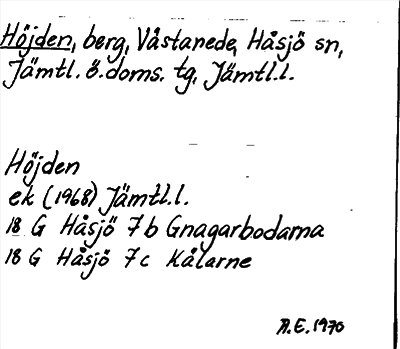 Höjden, berg, Västanede, Håsjö sn,
Jämtl. ö. doms. tg, Jämtl.l.
Höjden
ek (1968) Jämtl.l.
18 G Håsjö 7 b Gnagarbodarna
18 G Håsjö 7 c Kålarne
A.E. 1970